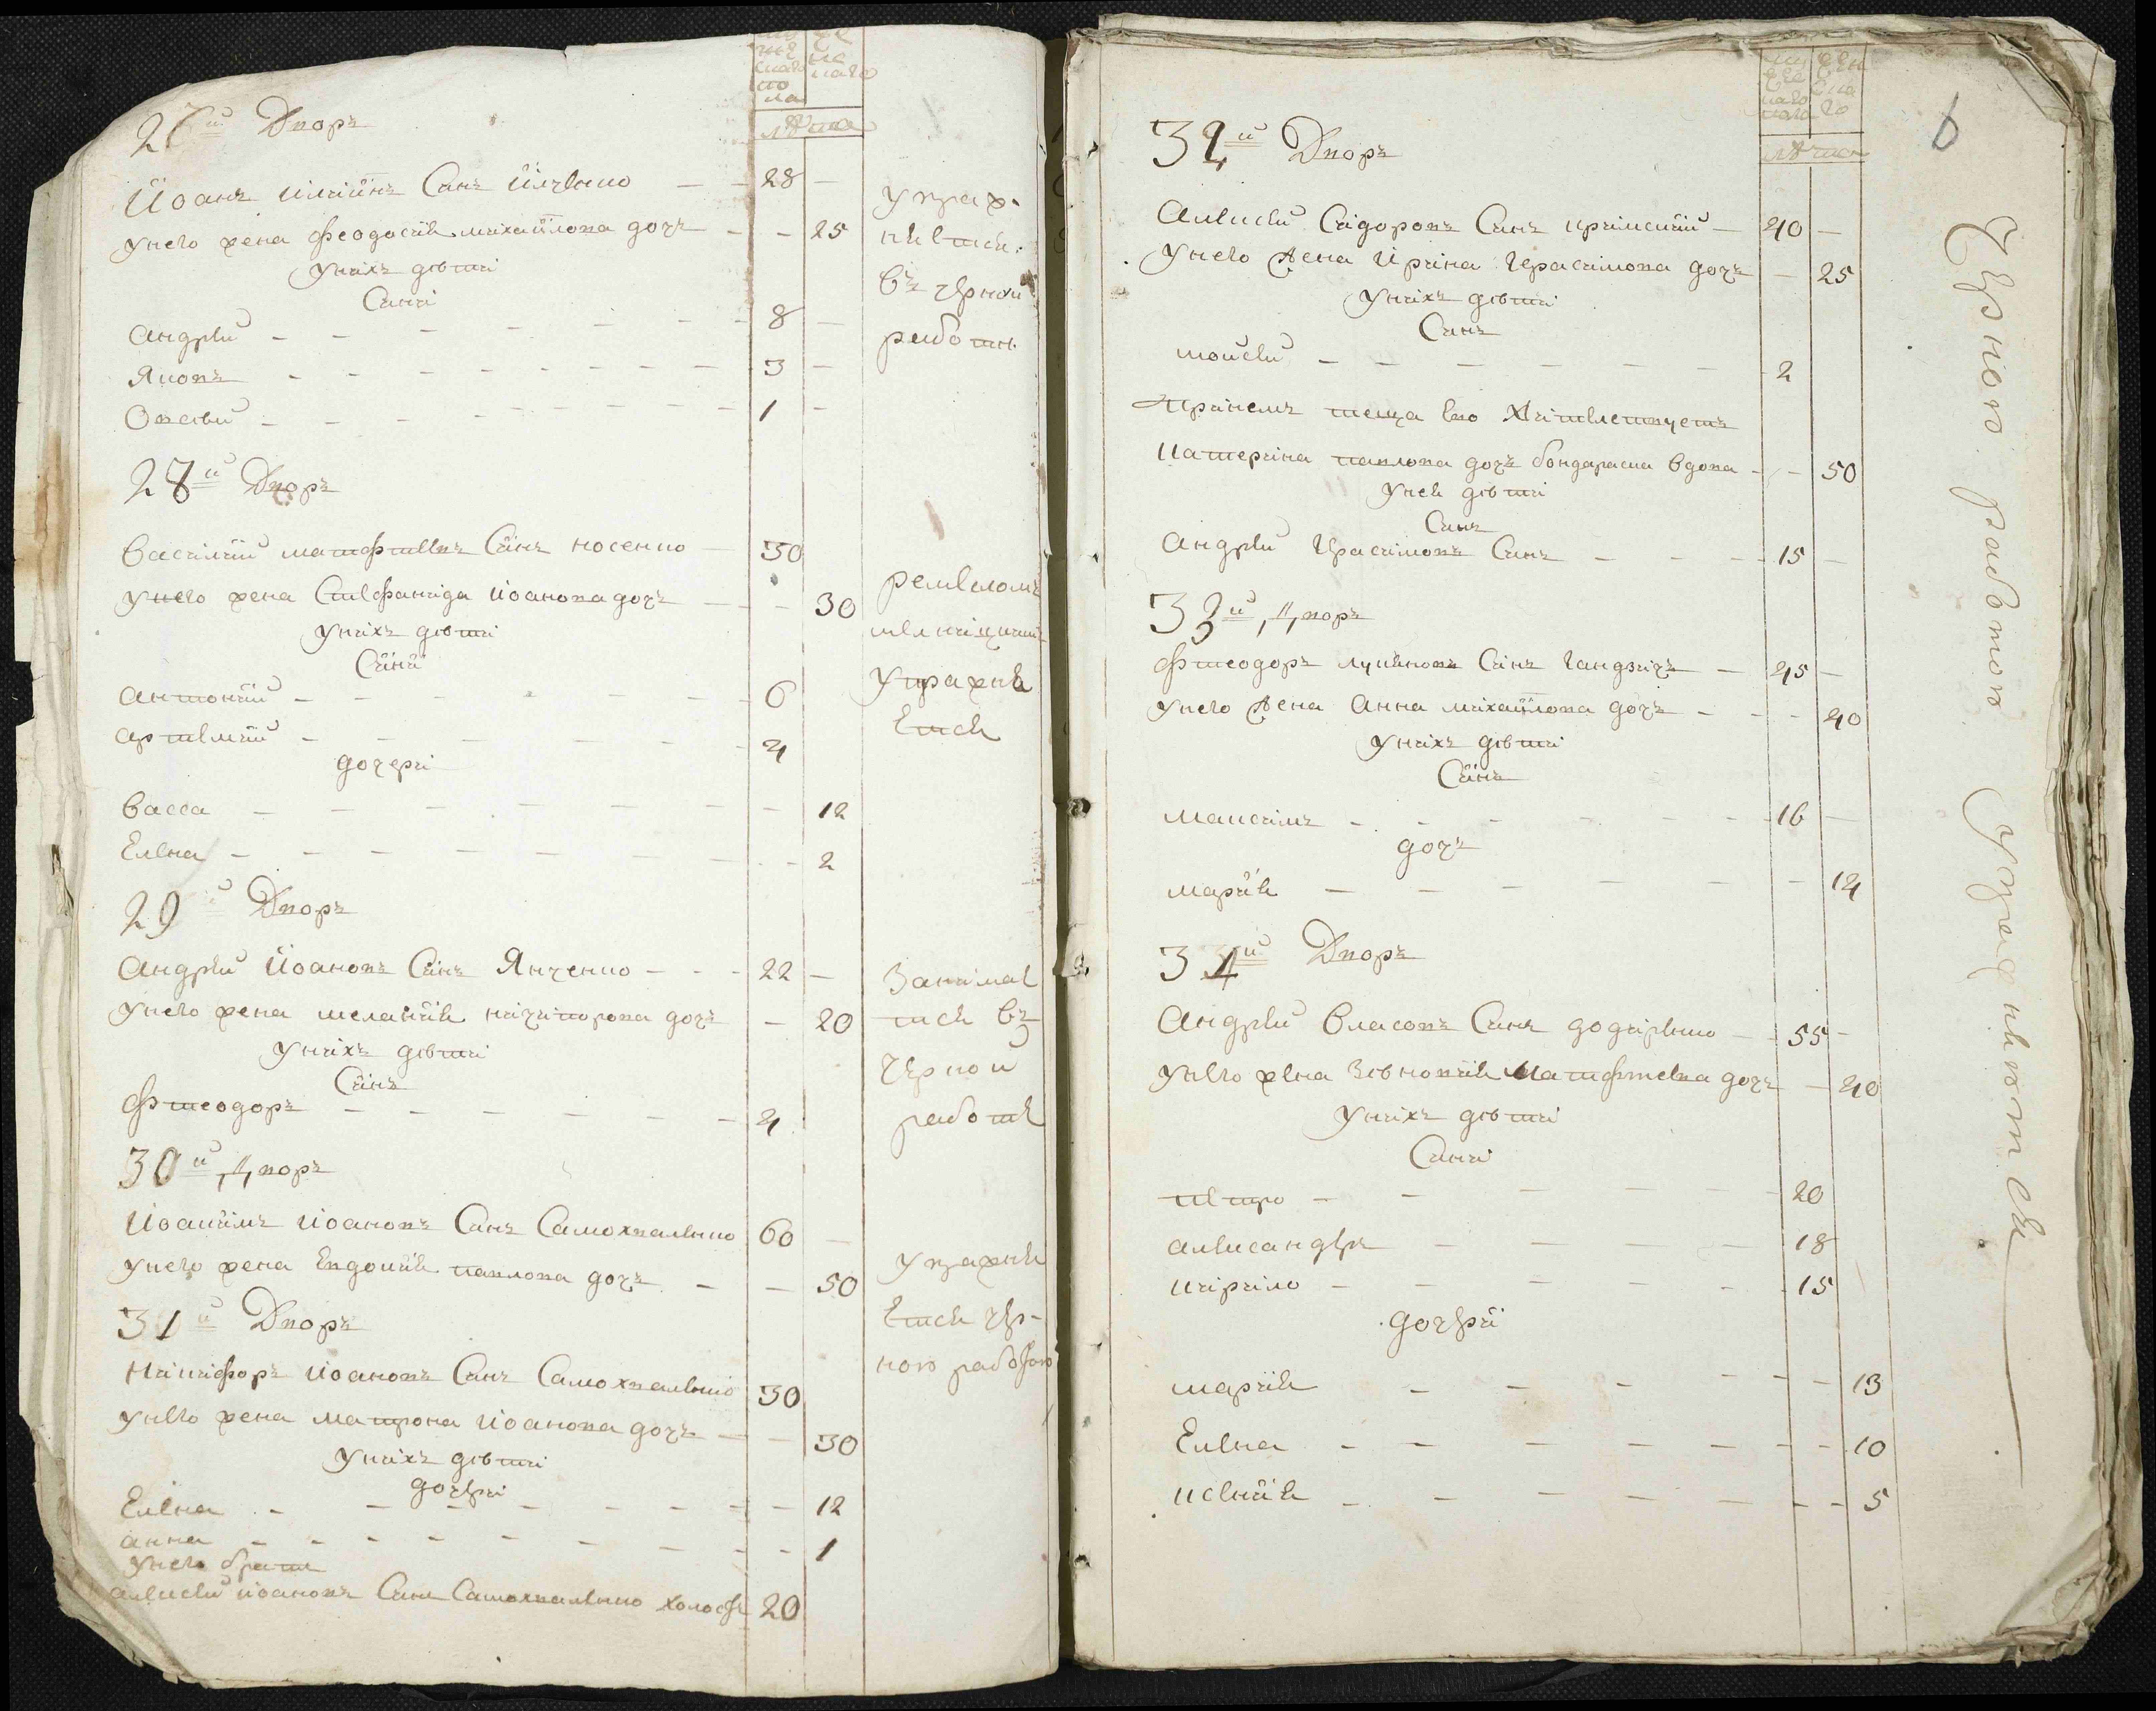 27й Дворъ
Иоанъ илиинъ Синъ илченко — 28 —
У него жена феодосия михаилова дочъ — 25
У нихъ дѣти
Сини
Андрѣй — 8 —
Яковъ — 3 —
Овсѣй — 1 —
Упраж-
няется
въ чѣрной
работѣ
28й Дворъ
Василий матфѣевъ Синъ носенко — 30
У него жена Стефанида иоанова дочъ — 30
У нихъ дѣти
Сини
антоний — 6
артемий — 4
дочери
васса — 12
Елена — 2
ремесломъ
Упражня
ется
29й Дворъ
Андрѣй иоановъ Синъ Янченко — 22 —
У него жена мелания никифорова дочъ — 20
У нихъ дѣти
Синъ
Фтеодоръ — 4
Занимае
тся въ
Чѣрной
работѣ
30й Дворъ
Иоакимъ иоановъ Синъ Самохваленко 60 —
У него жена Евдокия павлова дочъ — 50
31й Дворъ
Никифоръ иоановъ Синъ Самохваленко 30
У него жена матрона иоанова дочъ — 30
У нихъ дѣти
дочери
Елена — 12
анна — 1
У него братъ
алексѣй иоановъ Синъ Самохваленко холостъ 20
Упражня
ется чер-
ною работою
лѣта
6
32й Дворъ
Алексѣй Сидоровъ Синъ кримский — 40 —
У него жена Ирина Герасимова дочъ — 25
У нихъ дѣти
Синъ
моисѣй — 2
при немъ теща его жителствуетъ
катерина павлова дочъ бондарска вдова — 50
У ней дѣти
Синъ
Андрѣй Герасимовъ Синъ — 15 —
33й Дворъ
Фтеодоръ лукяновъ Синъ Гандзичъ — 45 —
У него жена Анна михаилова дочъ — 40
У нихъ дѣти
Синъ
максимъ — 16 —
дочъ
мария — 14
34й Дворъ
Андрѣй власовъ Синъ — 55 —
У него жена Зѣновия матфтева дочъ — 40
У нихъ дѣти
Сини
петро — 20
александеръ — 18
кирило — 15
дочѣри
мария — 13
Елена — 10
ксения — 5
Чѣрною работою Упражняются
лѣта